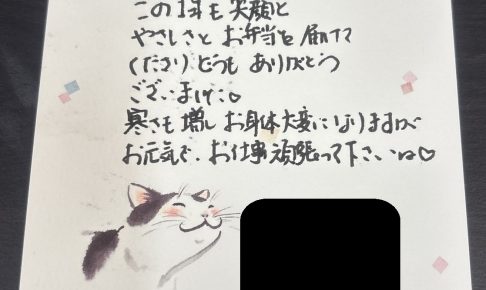 この1年も笑顔と
やさしさと お弁当を 届けて
くださり どうも ありがとう
ございました♡
寒さも増し お身体大変になりますが
お元気で、お仕事頑張って下さいね♡